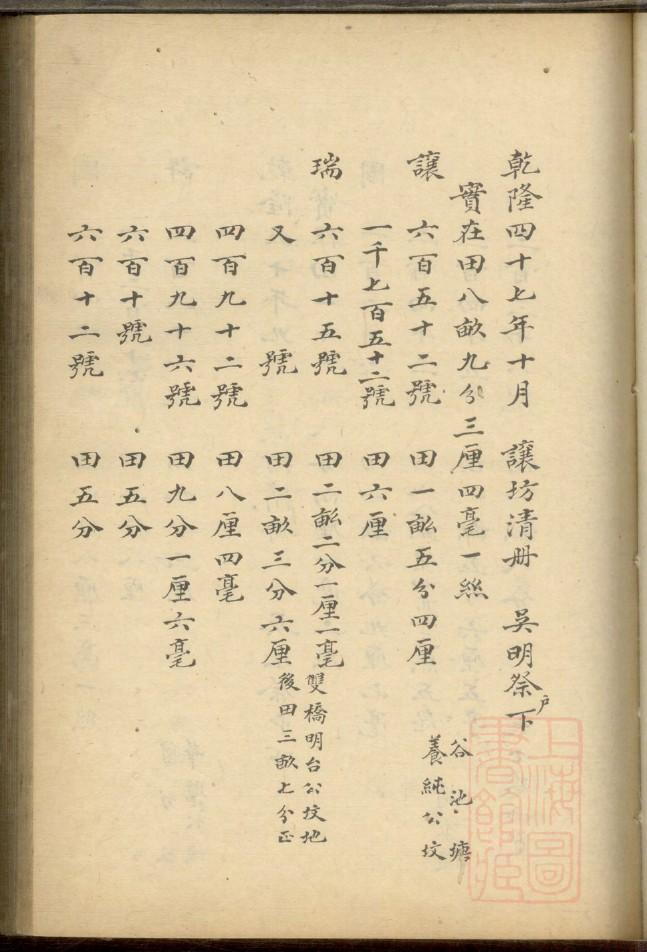 乾隆四十七年十月　讓坊清册　吳明祭户下
實在田八畝九分三厘四毫一絲
讓　六百五十二號　田一畝五分四厘　谷池塘
養純公坟
一千七百五十二號　田六厘
瑞　六百十五號　田二畝二分一厘一毫　雙橋明台公坟地
又　號　田二畝三分六厘　後田三畝七分正
四百九十二號　田八厘四毫
四百九十六號　田九分一厘六毫
六百十號　田五分
六百十二號　田五分
上海圖書館藏